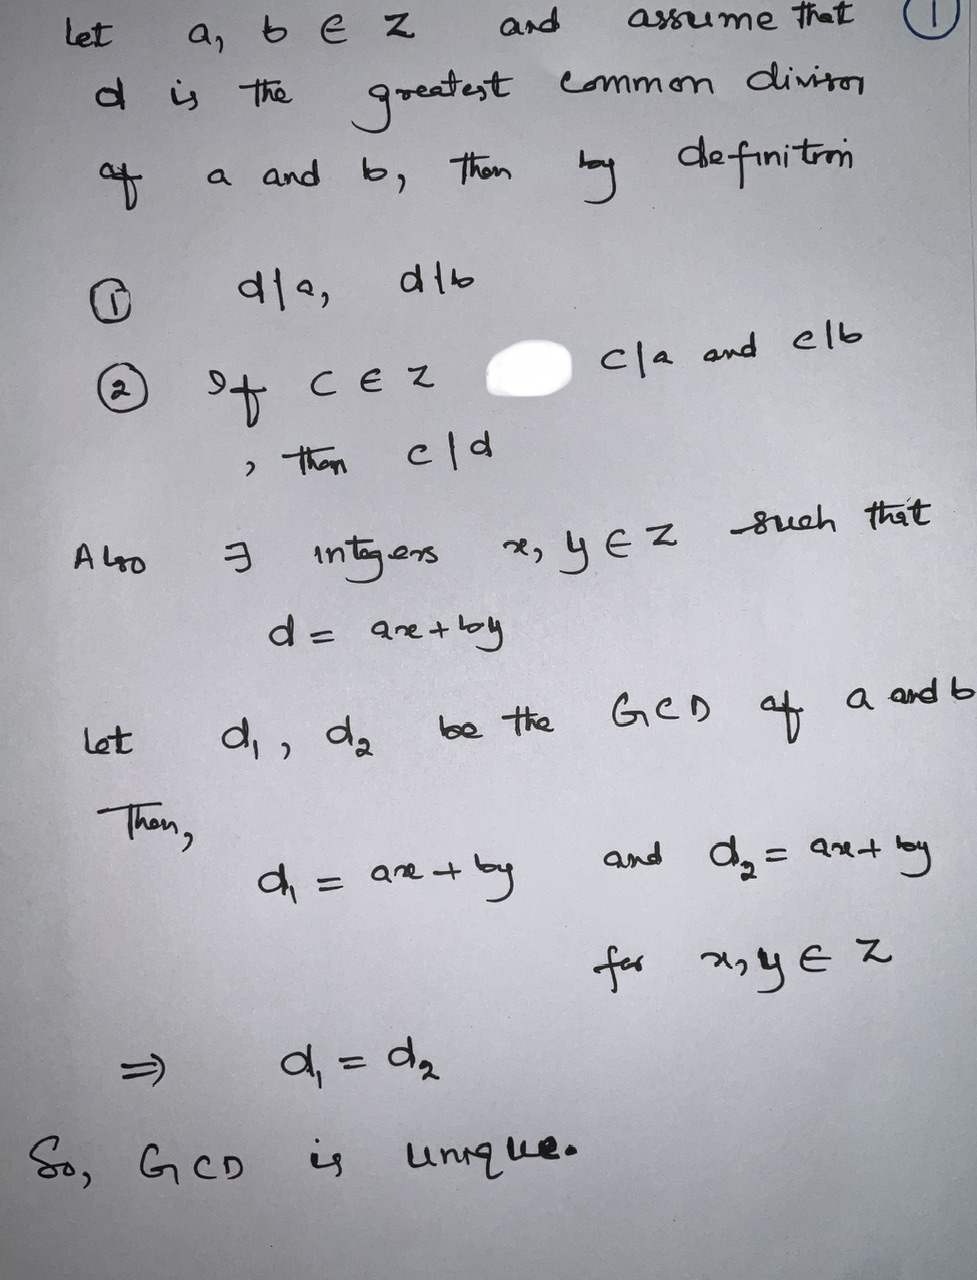 Let a, b ∈ Z and assume that ①
d is the greatest common divisor
of a and b, then by definition
① d|a, d|b
② If c ∈ Z c|a and c|b
, then c|d
Also ∃ integers x, y ∈ Z such that
d = ax + by
Let d₁, d₂ be the GCD of a and b
Then,
d₁ = ax + by and d₂ = ax + by
for x, y ∈ Z
⇒ d₁ = d₂
So, GCD is unique.